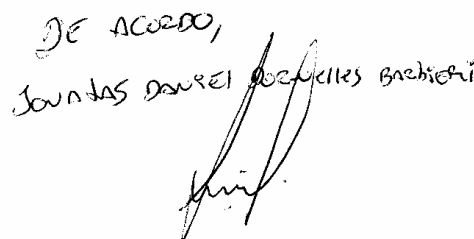 DE ACORDO,
JONATAS DANIEL DORNELLES BARBIERI